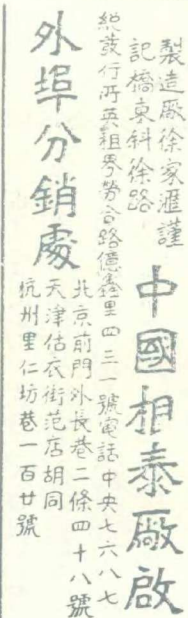 製造厰徐家滙謹
記橋東斜徐路
中國相泰厰啟
總發行所英租界勞合路億鑫里四三一號電話中央七六八七
外埠分銷處
北京前門外長巷二條四十八號
天津估衣街范店胡同
杭州里仁坊巷一百廿號